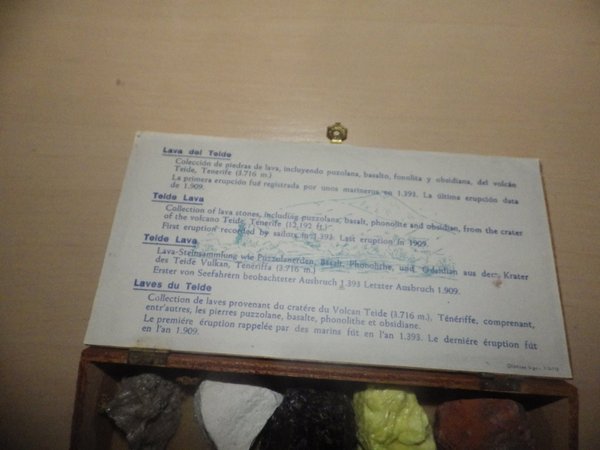 Lava del Teide
Colección de piedras de lava, incluyendo puzolana, basalto, fonolita y obsidiana, del volcán
Teide, Tenerife (3.716 m.)
La primera erupción fué registrada por unos marineros en 1.393. La última erupción data
de 1.909.
Teide Lava
Collection of lava stones, including puzzolana, basalt, phonolite and obsidian, from the crater
of the volcano Teide, Tenerife (12,192 ft.)
First eruption recorded by sailors in 1.393. Last eruption in 1909.
Teide Lava
Lava-Steinsammlung wie Puzzolanerden, Basalt, Phonolithe, und Obsidian aus dem Krater
des Teide Vulkan, Teneriffa (3.716 m.)
Erster von Seefahrern beobachteter Ausbruch 1.393 Letzter Ausbruch 1.909.
Laves du Teide
Collection de laves provenant du cratére du Volcan Teide (3.716 m.), Ténériffe, comprenant,
entr'autres, les pierres puzzolane, basalte, phonolithe et obsidiane.
Le premiére éruption rappelée par des marins fût en l'an 1.393. Le derniére éruption fût
en l'an 1.909.